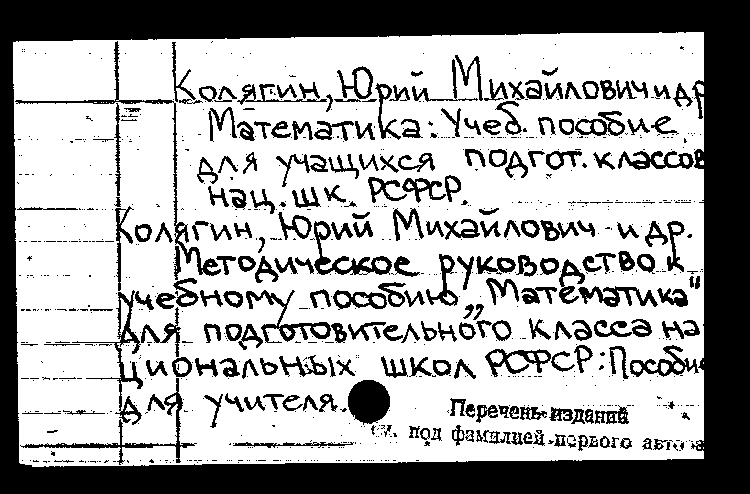 Колягин, Юрий Михайлович и др
Математика: Учеб. пособие
для учащихся подгот. классов
нац. шк. РСФСР.
Колягин, Юрий Михайлович и др.
Методическое руководство к
учебному пособию „Математика"
для подготовительного класса на
циональных школ РСФСР: Пособие
для учителя.
Перечень изданий
см. под фамилией первого автора